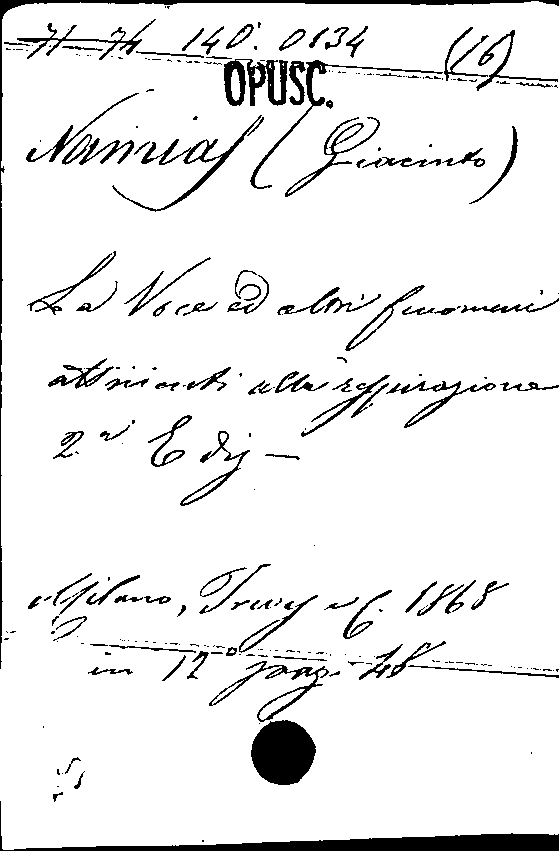 71 74 140. 0134 (16)
OPUSC.
Namias (Giacinto)
La Voce ed altri fenomeni
attinenti alla respirazione
2.a Ediz —
Milano, Treves e C. 1868
in 12° pag. 48